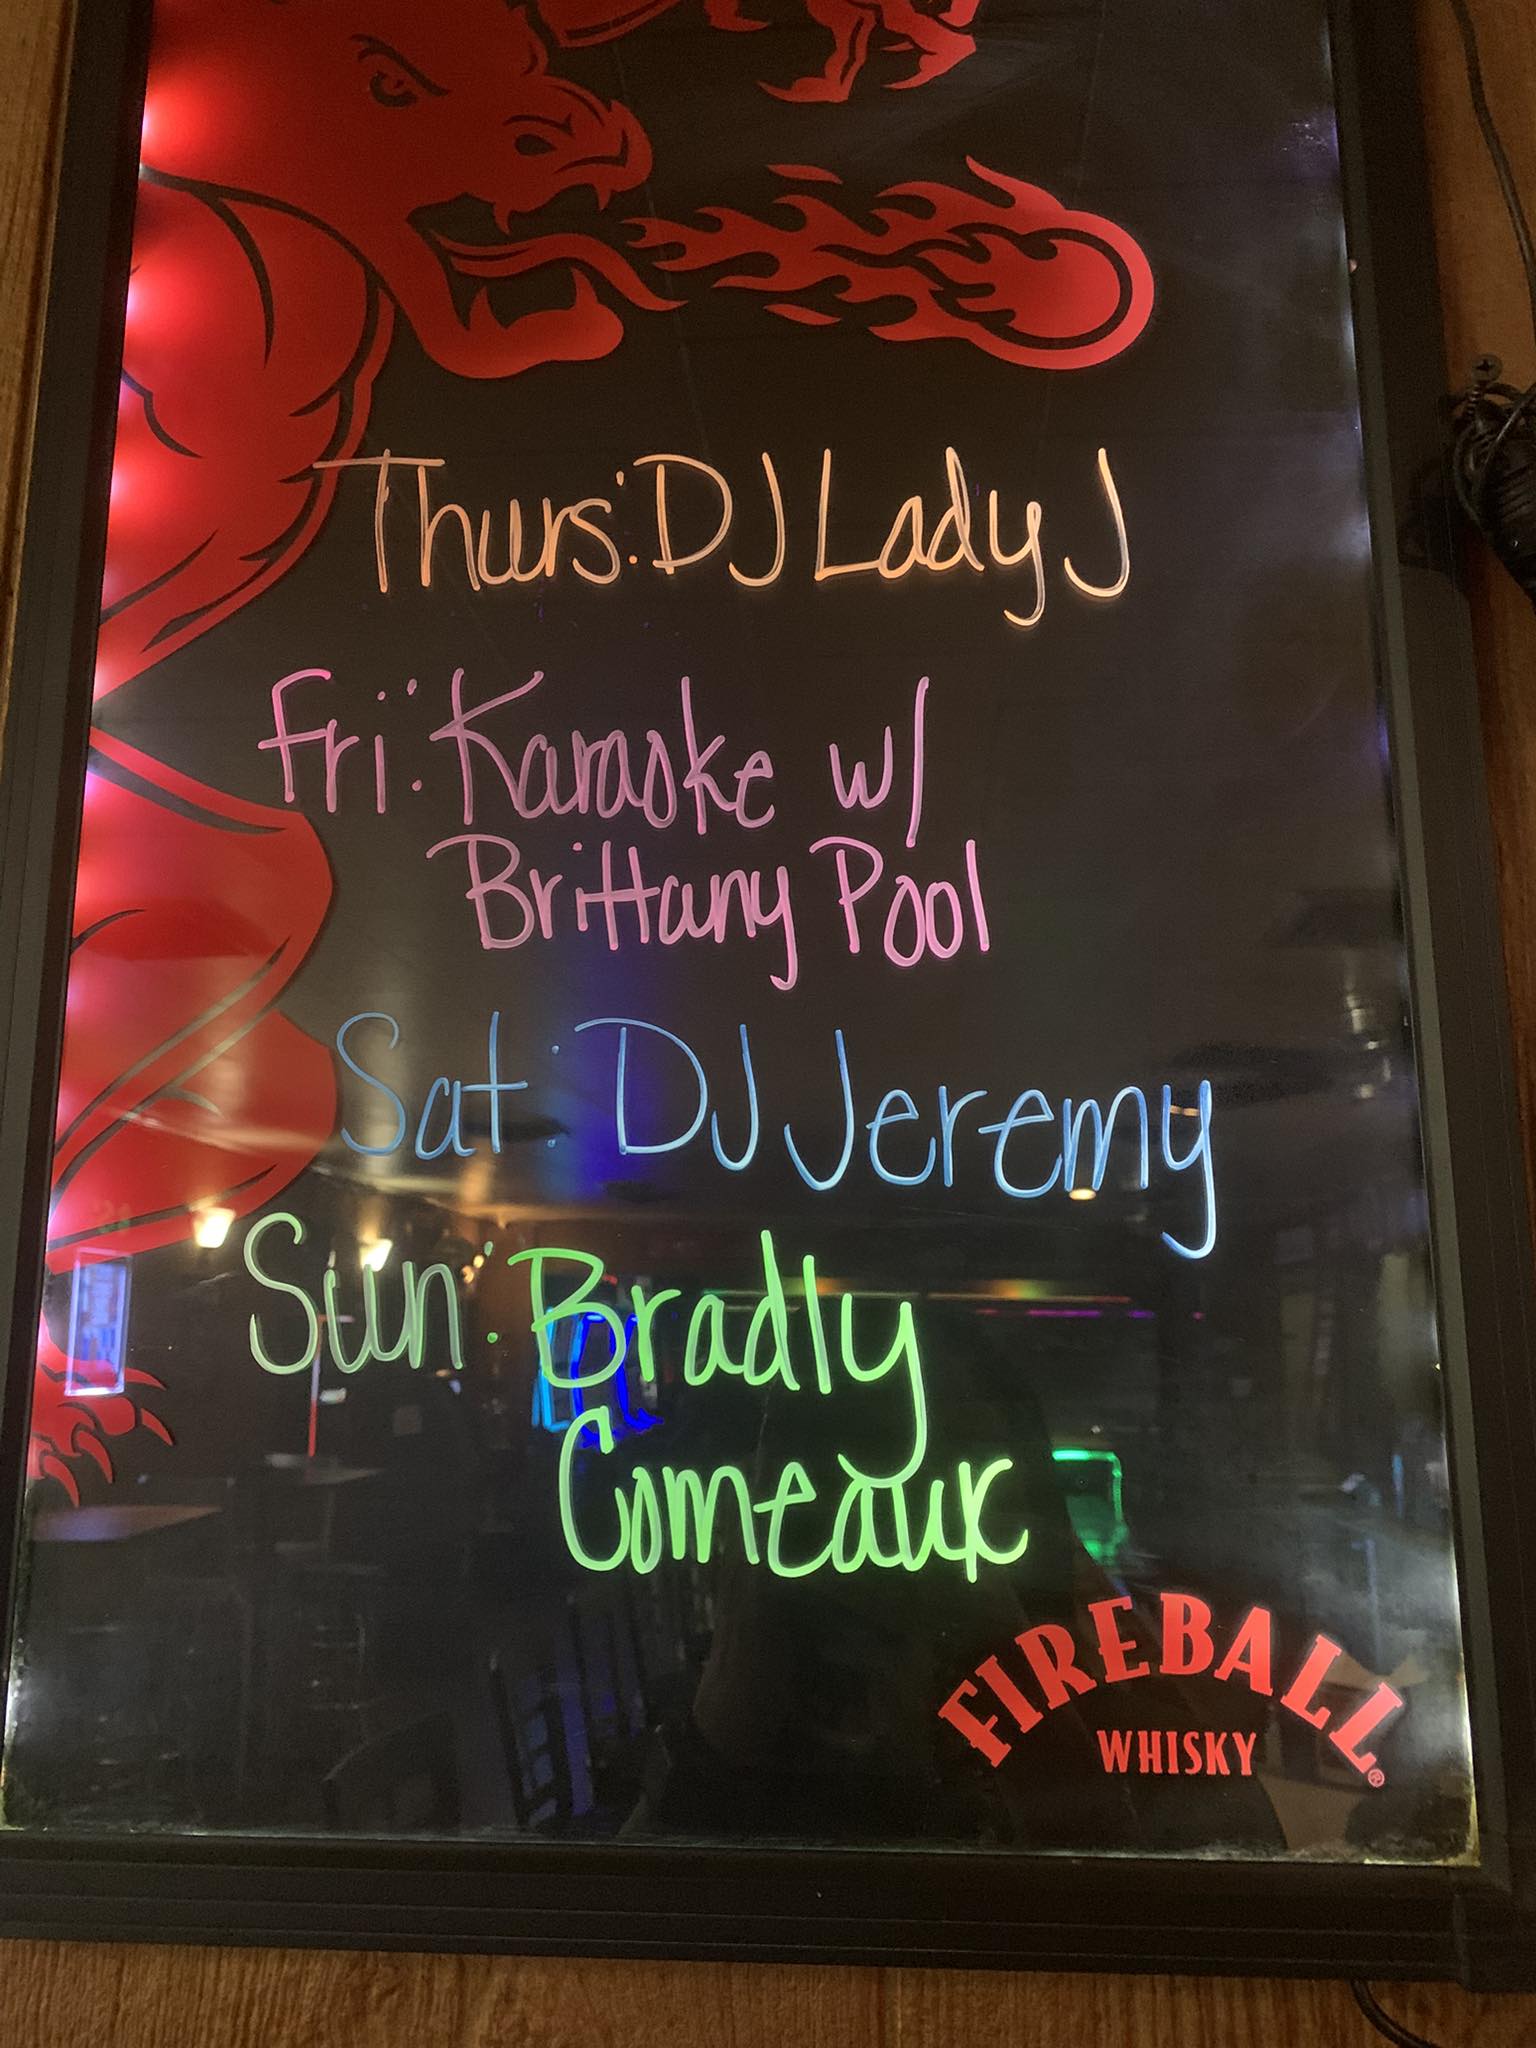 Thurs: DJ Lady J
Fri: Karaoke w/
Brittany Pool
Sat: DJ Jeremy
Sun: Bradly
Comeaux
FIREBALL®
WHISKY